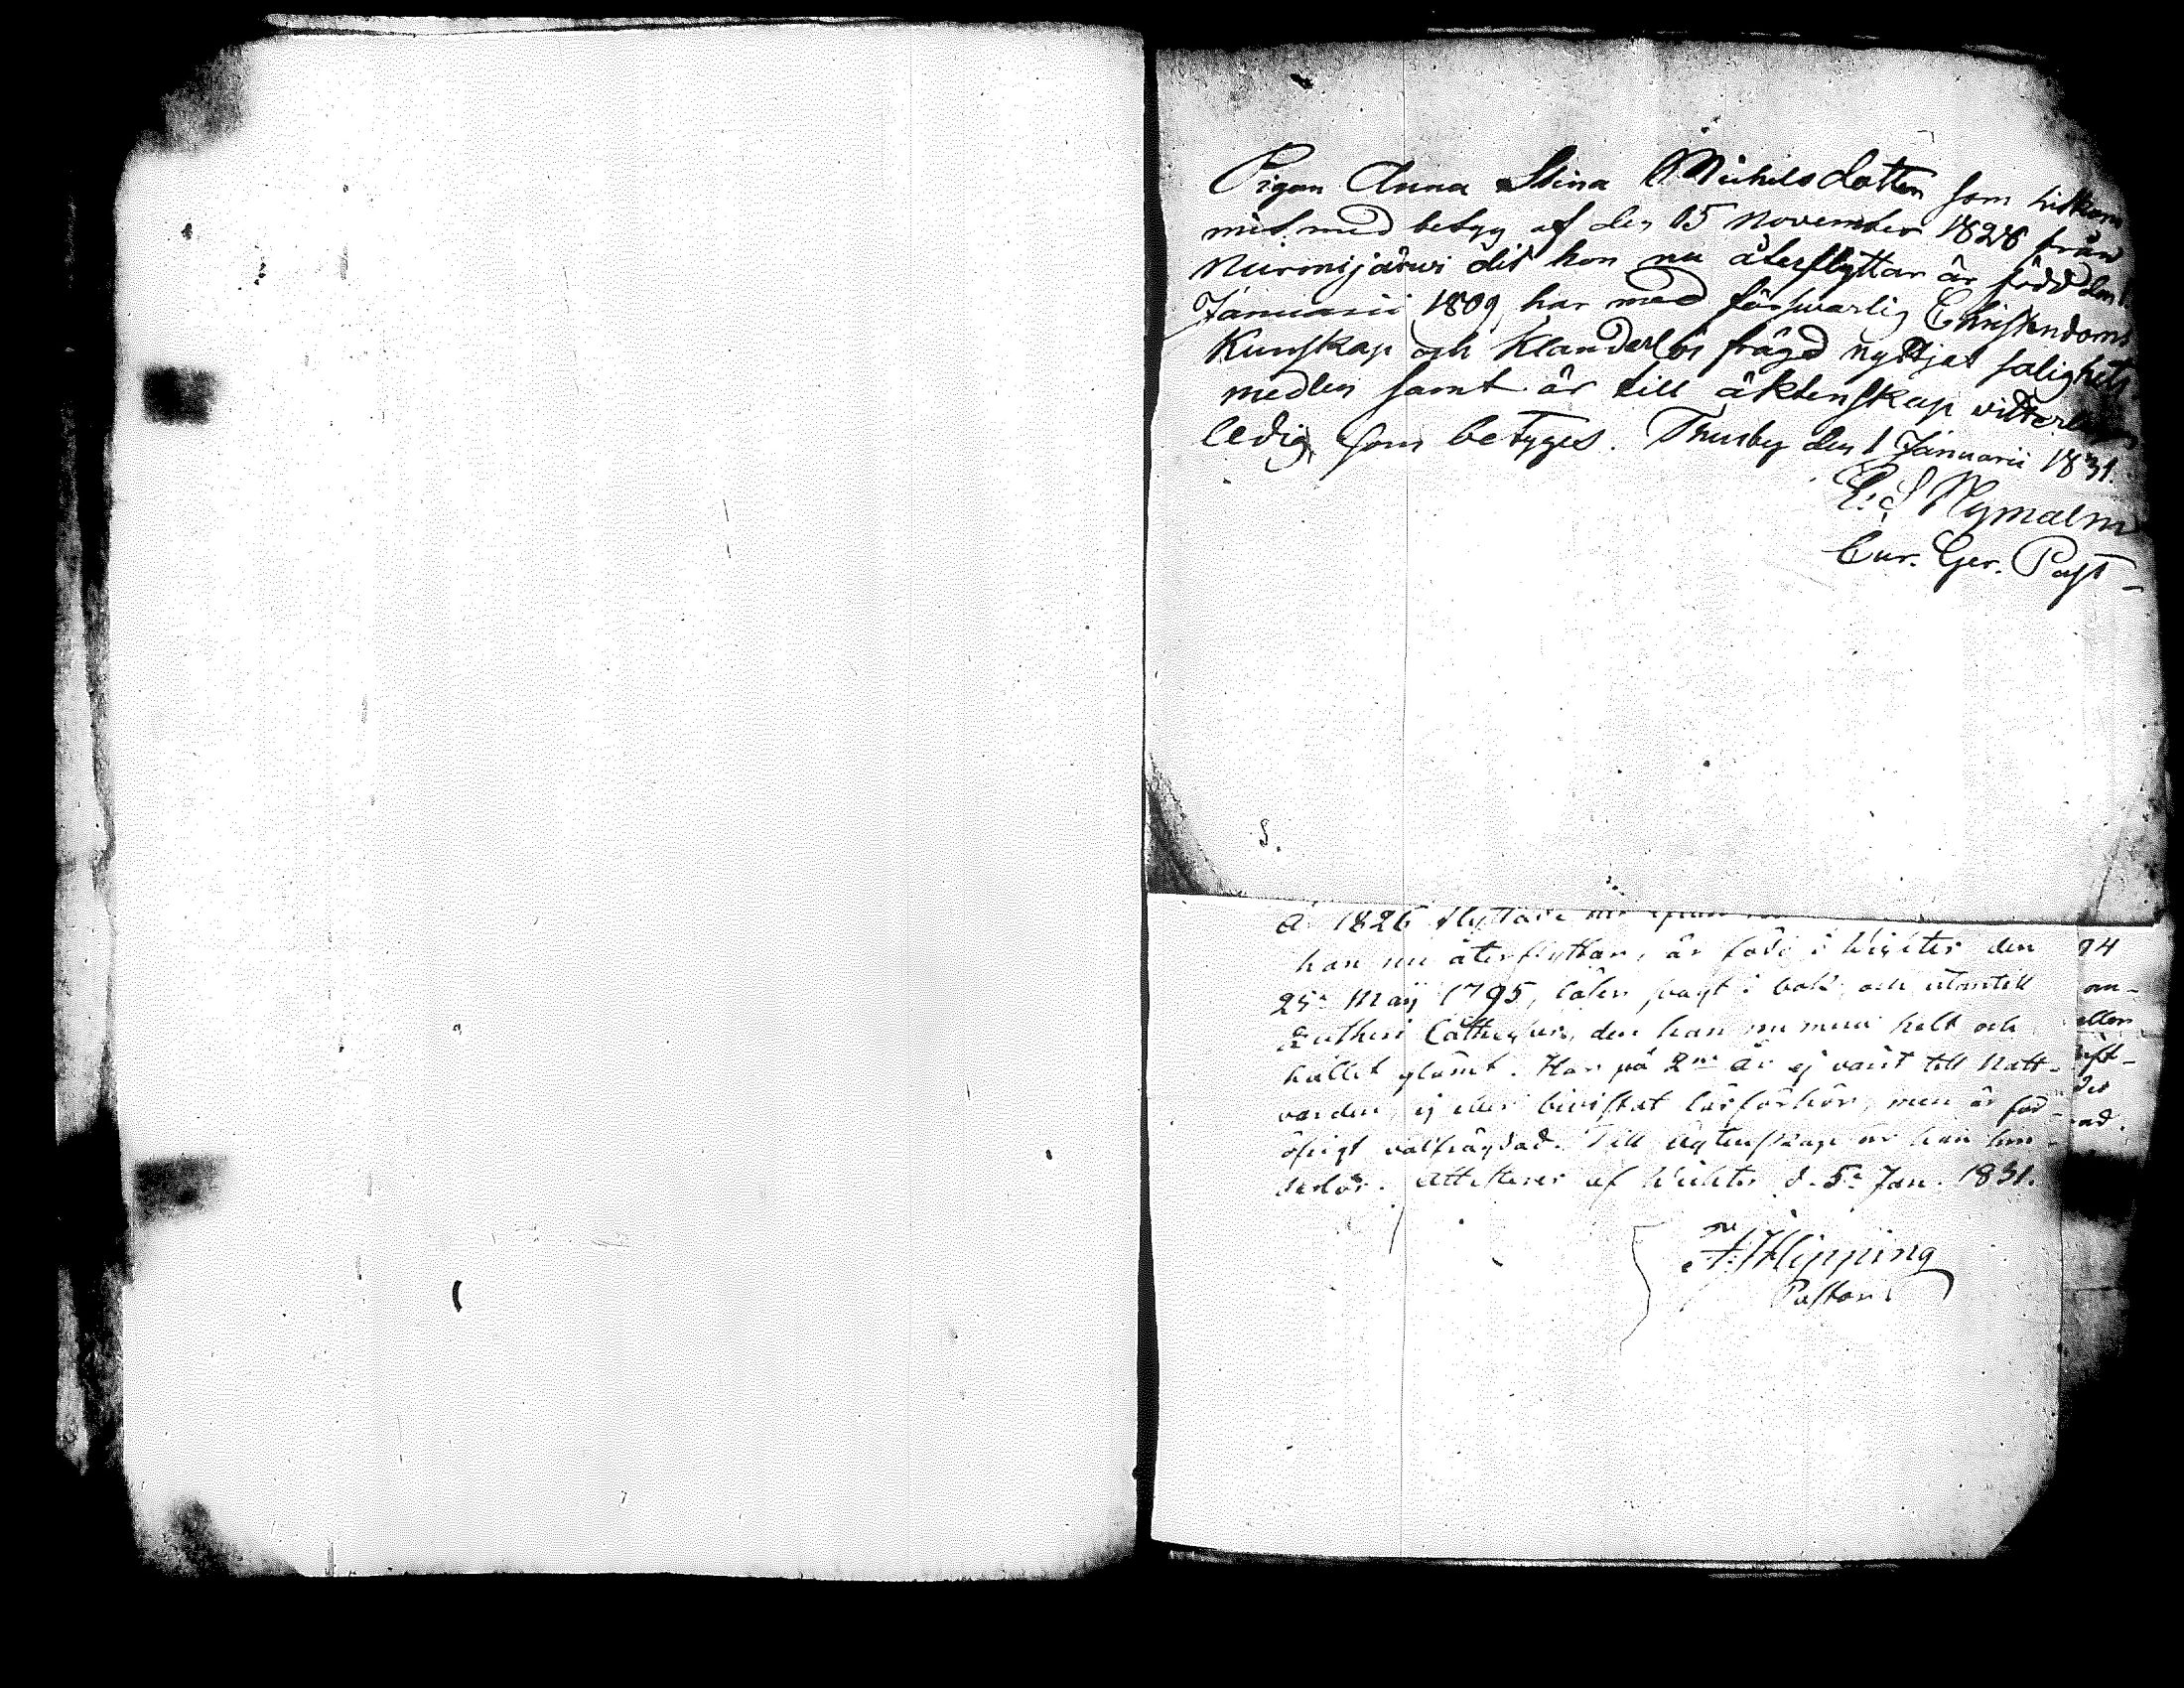 Pigan Anna Stina Michelsdotter som hitkom
mit med betyg af den 15 November 1828 från
Nurmijärwi dit hon nu återflyttar är född den
Januarii 1809, har med försvarlig Christendoms
Kunskap och Klanderlös frägd nyttjat salighets
medlen samt är till äktenskap vitterligen
ledig som betyges. Thusby den 1 Januarii 1831.
Nymalm
Cur. Ger. Past
S.
År 1826 flyttade
han nu återflyttar, är född i Wichtis den
25 Maij 1795, läser svagt i bok och utantill
Lutheri Catheches, den han nu mera helt och
hållet glömt. Har på 2ne år ej varit till Natt-
varden, ej eller bevistat läsförhör, men är för
öfrigt välfrägdad. Till ägtenskap är han hin-
derlös. Attesteras af Wichtis d. 5 Jan. 1831.
A. J. Hipping
Pastor
24
an-
eller
ift-
det
ad.